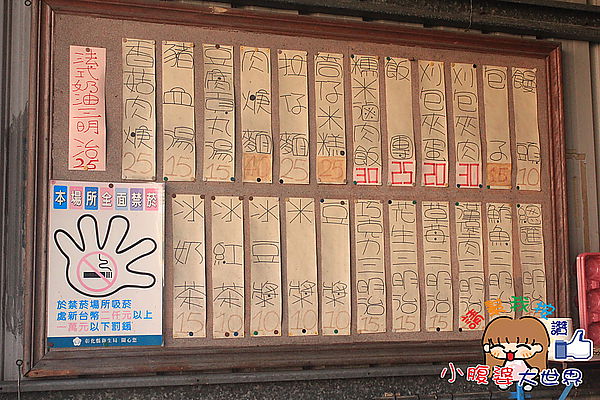 法式奶油三明治 25
香菇肉焿 25
豬血湯 15
豆腐魚丸湯 15
肉焿麵
拉な麵 25
筒な米糕 25
滷肉飯 30
飯團 25
刈包夾蛋 20
刈包夾肉 30
包子 15
饅頭 10
冰奶茶 15
冰紅茶 10
冰豆漿
米漿 10
豆漿
巧克力三明治 15
花生三明治 15
草莓三明治 15
肉三明
鮪魚三
本場所全面禁菸
於禁菸場所吸菸
處新台幣二仟元以上
一萬元以下罰鍰
彰化縣衛生局 關心您
讚
小腹婆大世界